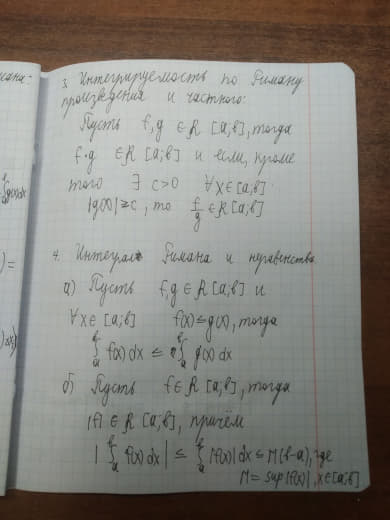 3. Интегрируемость по Риману
произведения и частного:
Пусть f, g ∈ R [a; b], тогда
f·g ∈ R [a; b] и если, кроме
того ∃ c>0 ∀x∈[a; b]:
|g(x)| ≥ c, то f/g ∈ R [a; b]
4. Интеграл Римана и неравенства
а) Пусть f, g ∈ R [a; b] и
∀x∈ [a; b] f(x) ≤ g(x), тогда
∫ₐᵇ f(x) dx ≤ ∫ₐᵇ g(x) dx
б) Пусть f ∈ R [a; b], тогда
|f| ∈ R [a; b], причём
| ∫ₐᵇ f(x) dx | ≤ ∫ₐᵇ |f(x)| dx ≤ M(b-a), где
M = sup |f(x)|, x∈[a; b]